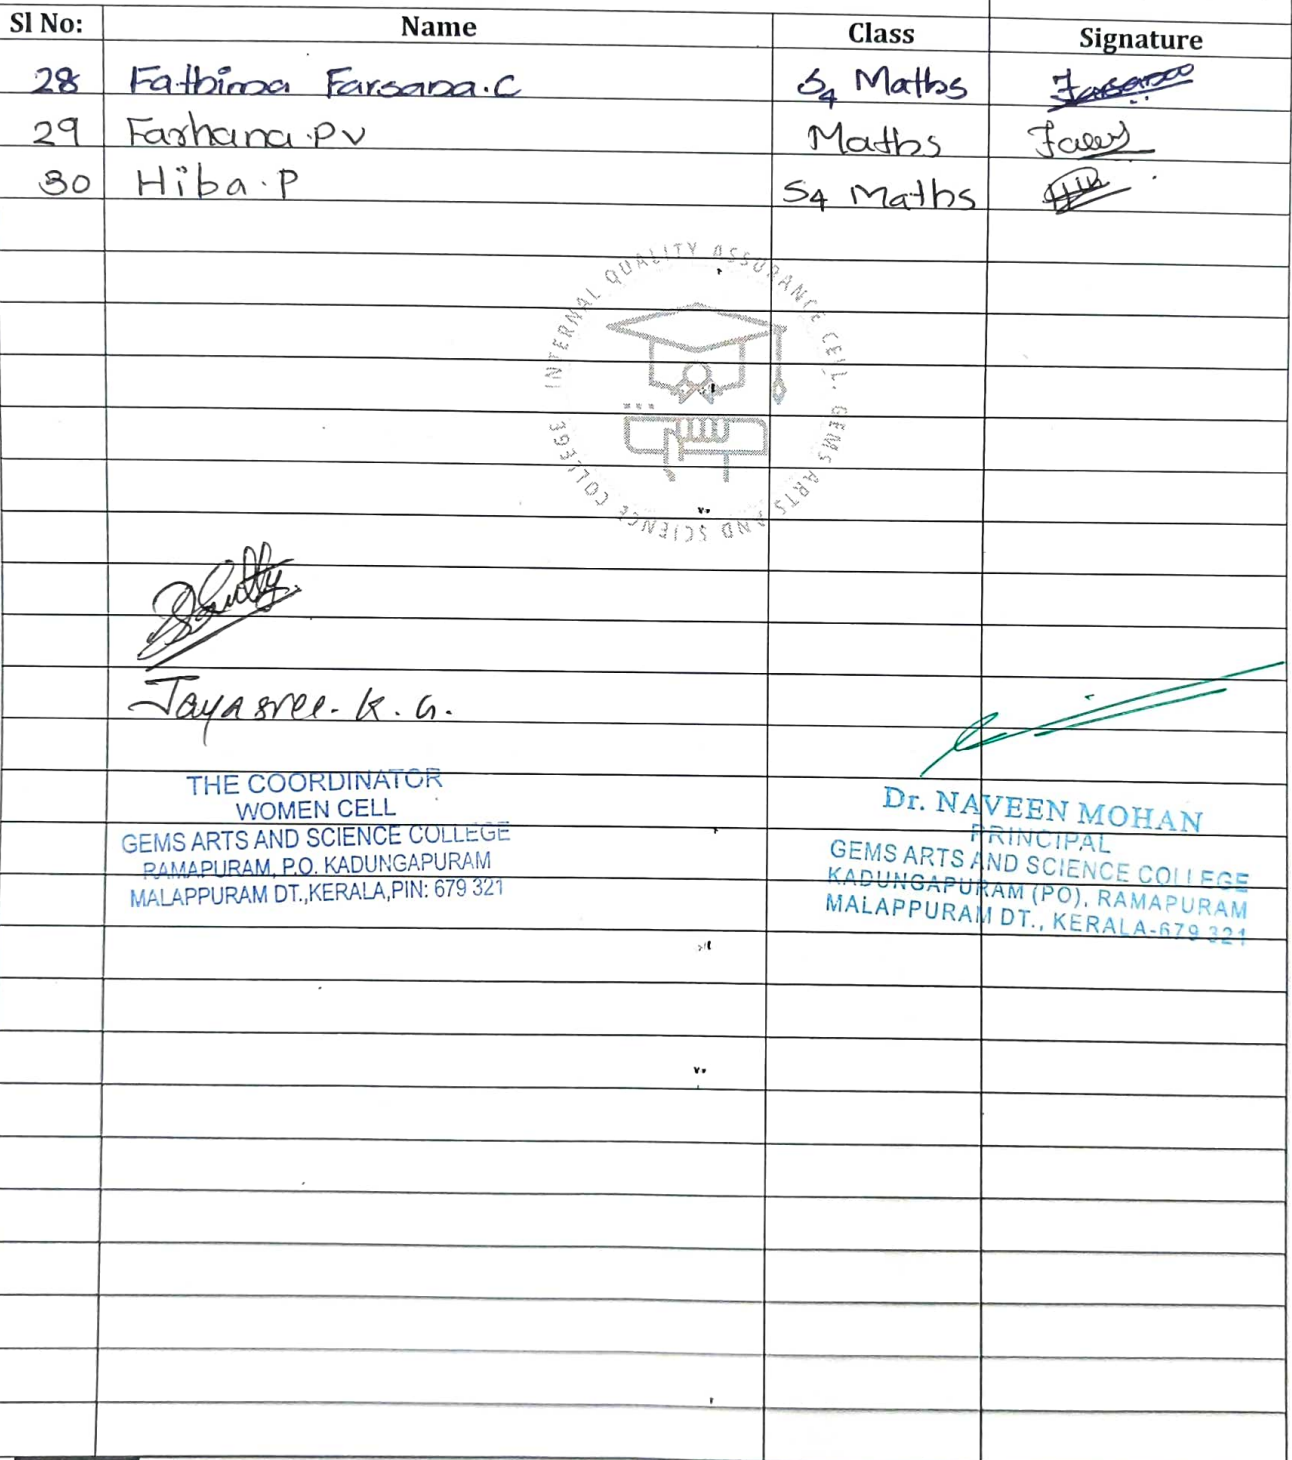 Sl No: Name Class Signature
28 Fathima Farsana.C S4 Maths
29 Farhana.PV Maths
30 Hiba.P S4 Maths
INTERNAL QUALITY ASSURANCE CELL. GEMS ARTS AND SCIENCE COLLEGE
Jayasree.K.G.
THE COORDINATOR
WOMEN CELL
GEMS ARTS AND SCIENCE COLLEGE
RAMAPURAM, P.O. KADUNGAPURAM
MALAPPURAM DT.,KERALA,PIN: 679 321
Dr. NAVEEN MOHAN
PRINCIPAL
GEMS ARTS AND SCIENCE COLLEGE
KADUNGAPURAM (PO), RAMAPURAM
MALAPPURAM DT., KERALA-679 321